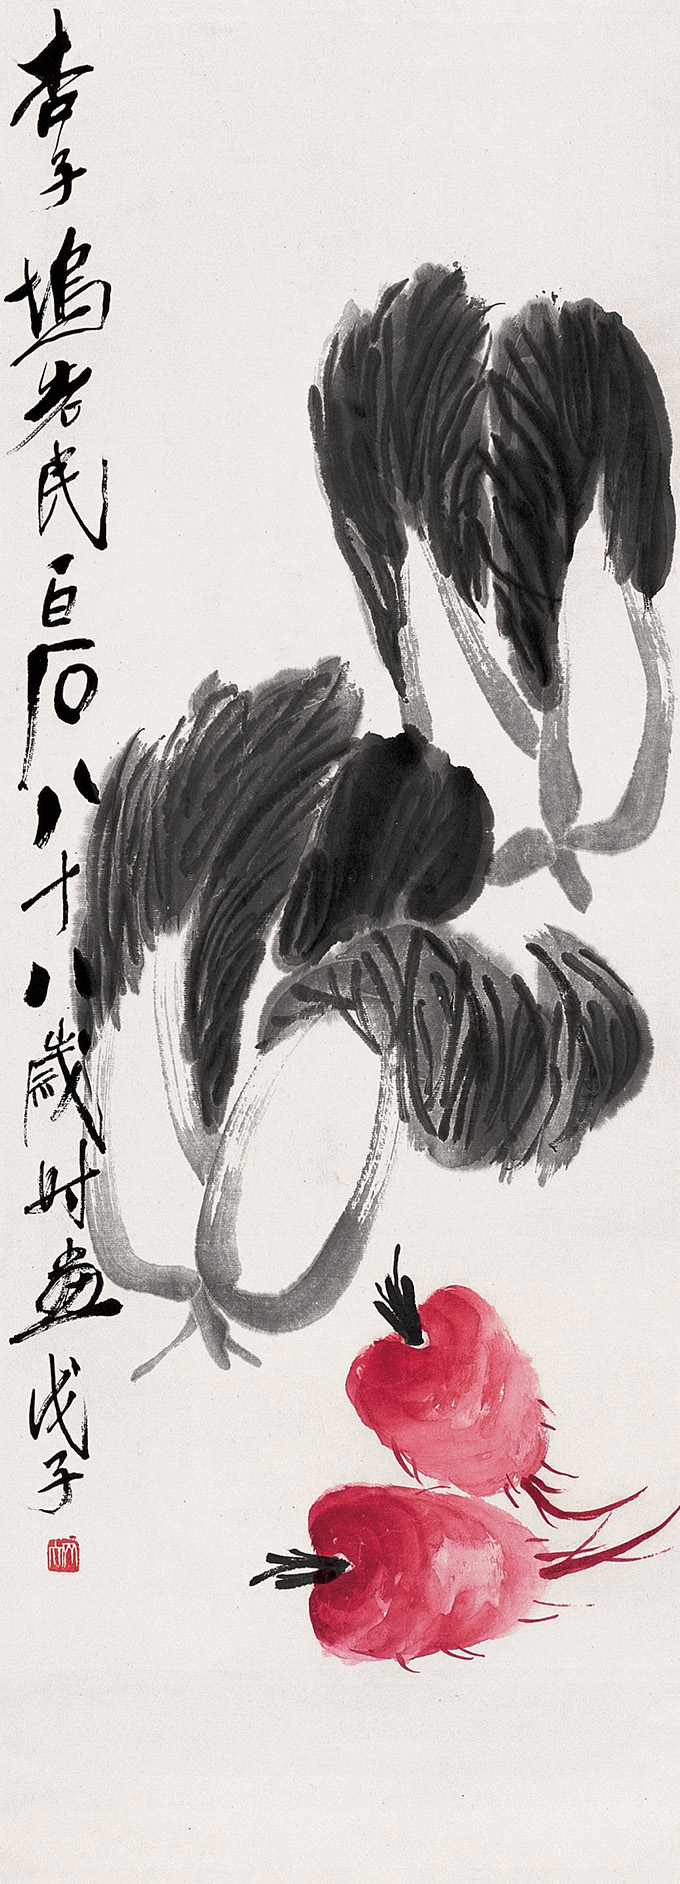 杏子隖老民白石八十八歲時畫戊子